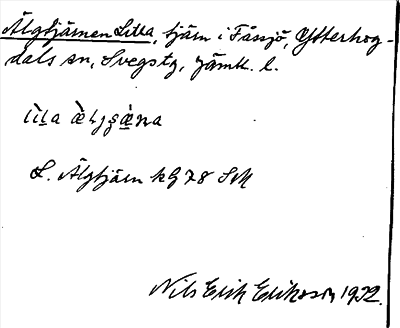 Älgtjärnen Lilla, tjärn i Fåssjö, Ytterhog-
dals sn, Svegs tg, Jämtl. l.
L. Älgtjärn kg 78 SM
Nils Erik Eriksson 1932.